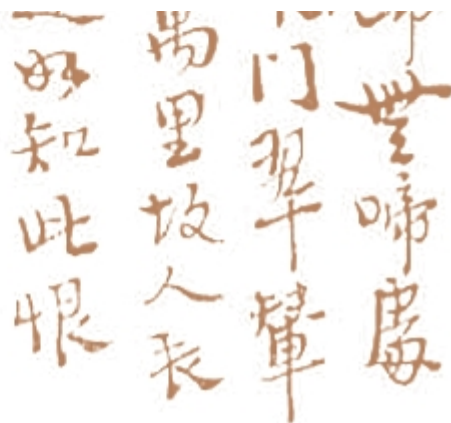 無啼處
门翠輦
萬里故人長
如知此恨